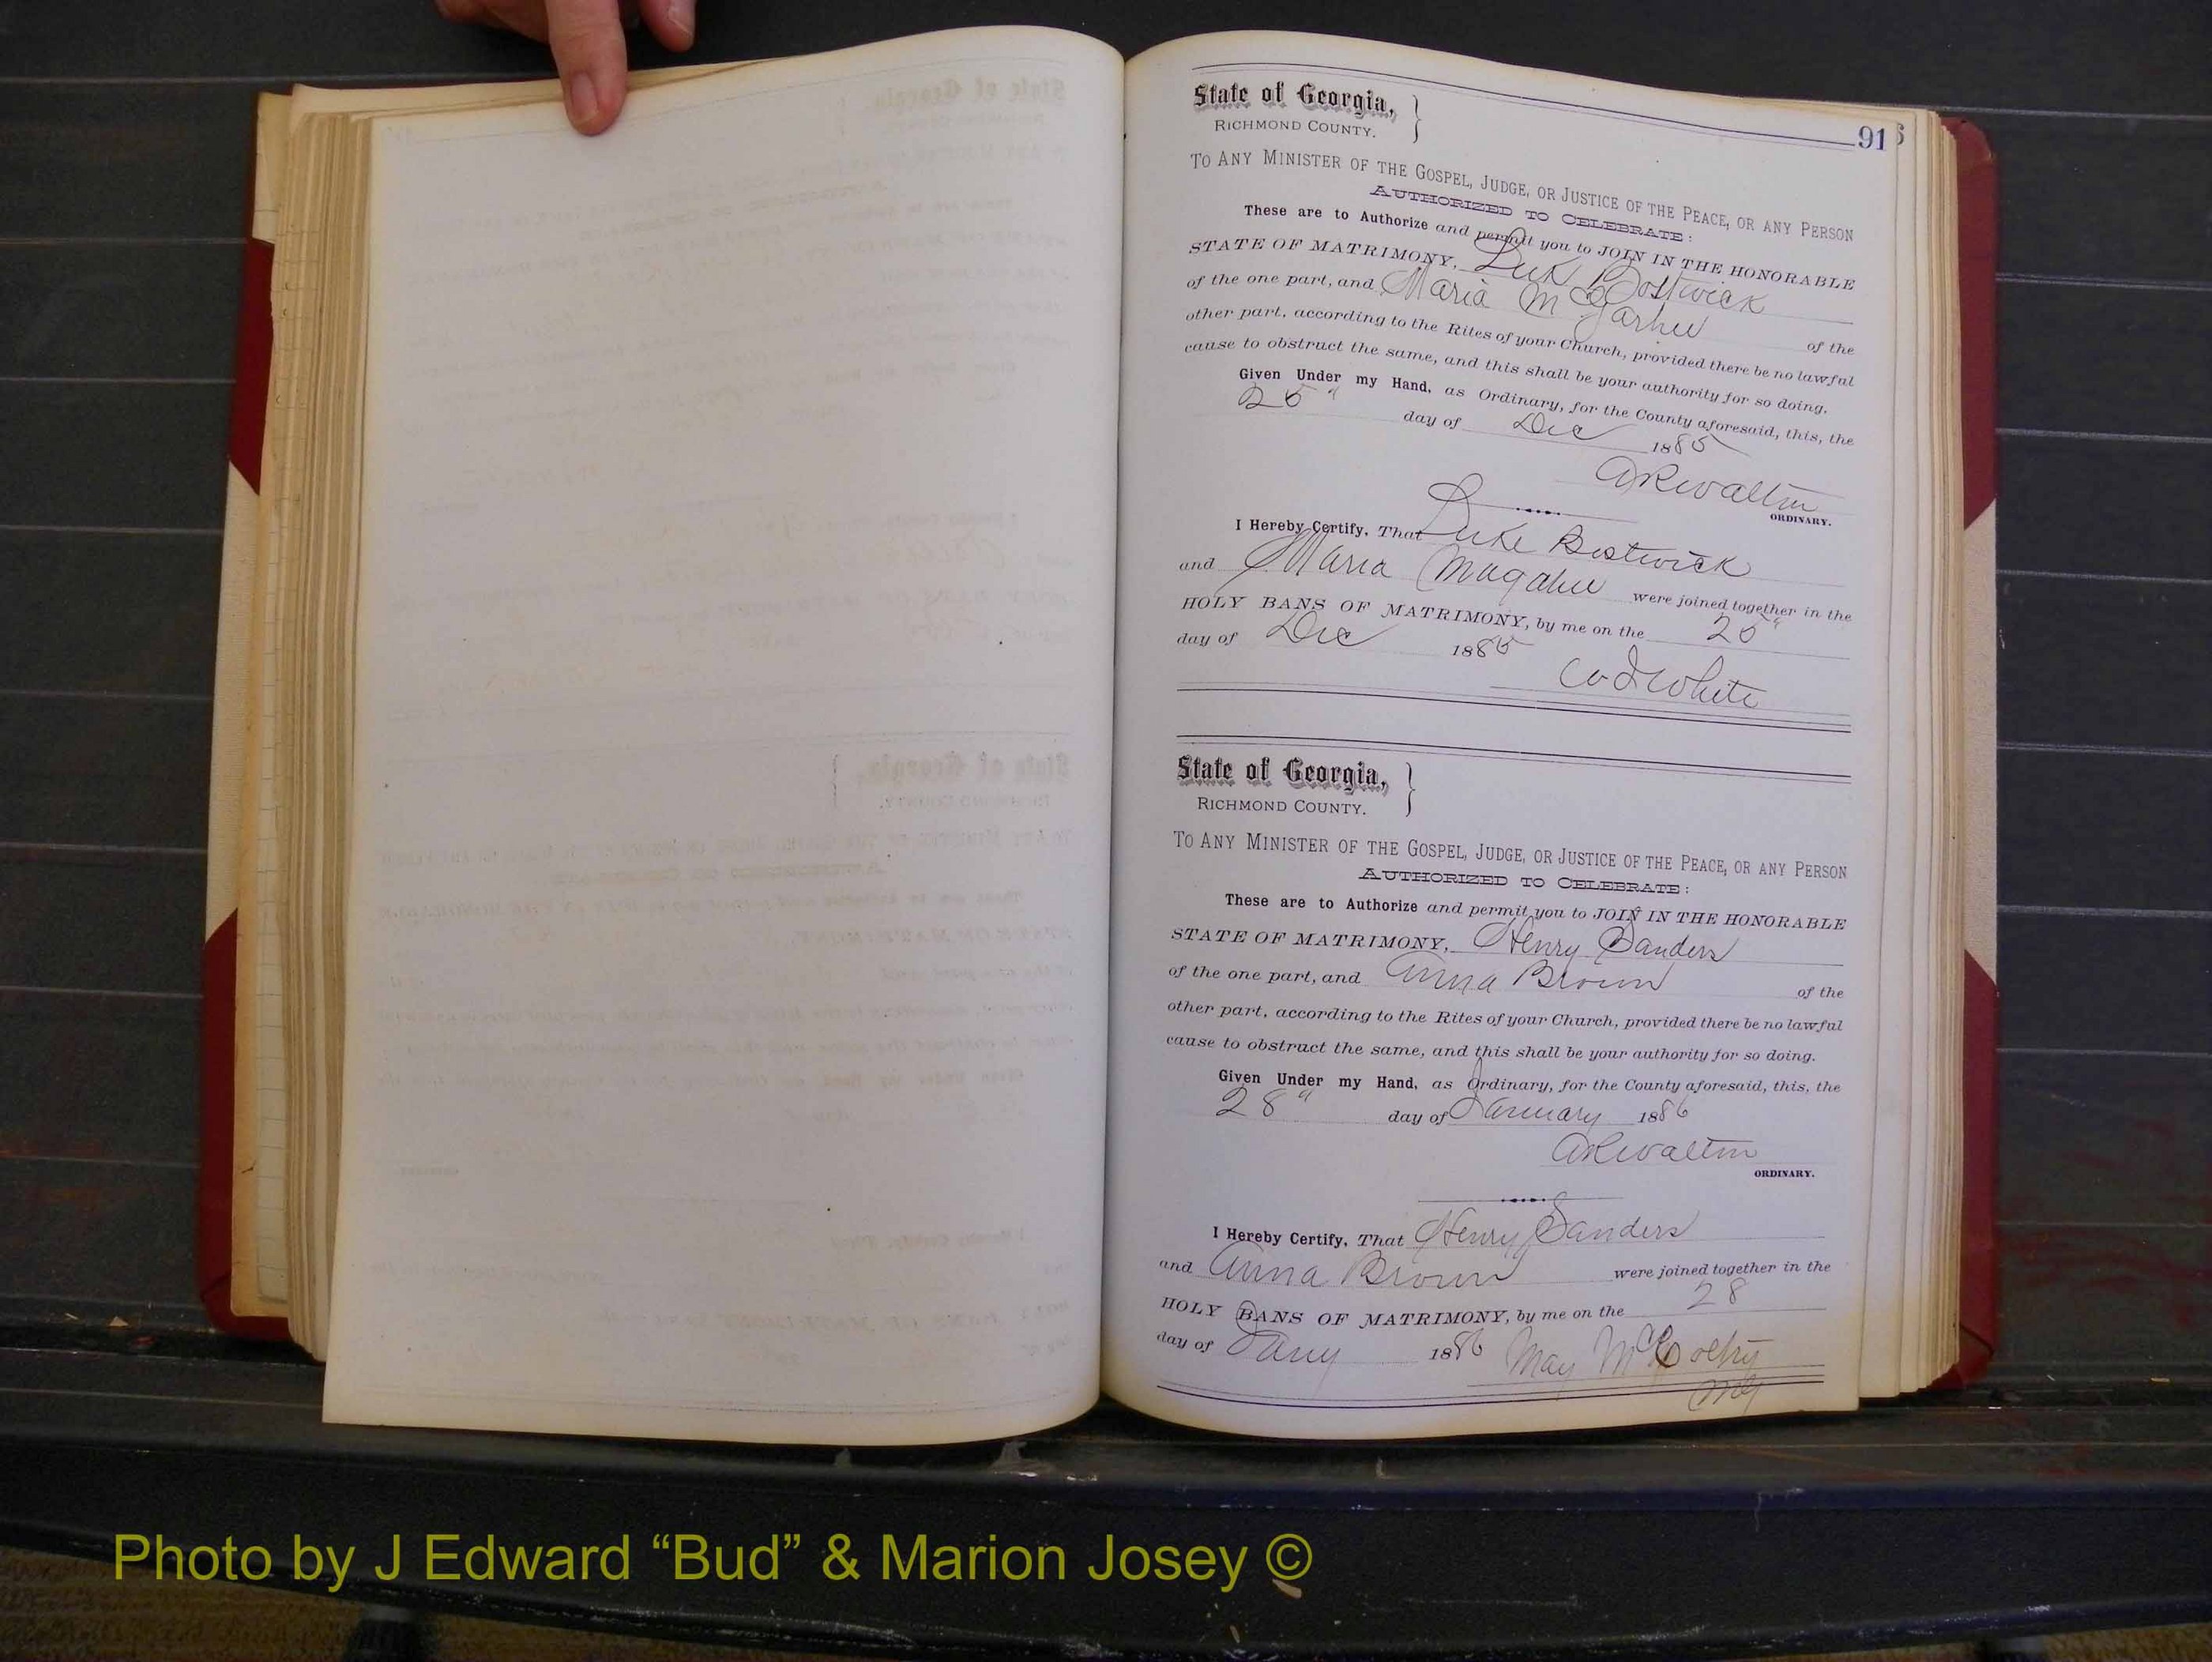 91
State of Georgia,
RICHMOND COUNTY.
TO ANY MINISTER OF THE GOSPEL, JUDGE, OR JUSTICE OF THE PEACE, OR ANY PERSON
AUTHORIZED TO CELEBRATE:
These are to Authorize and permit you to JOIN IN THE HONORABLE
STATE OF MATRIMONY, Luk Bostwick
of the one part, and Maria McGarhee of the
other part, according to the Rites of your Church, provided there be no lawful
cause to obstruct the same, and this shall be your authority for so doing.
Given Under my Hand, as Ordinary, for the County aforesaid, this, the
25" day of Dec 1885
ARWalton
ORDINARY.
I Hereby Certify, That Luke Bostwick
and Maria Magahee were joined together in the
HOLY BANS OF MATRIMONY, by me on the 25"
day of Dec 1885
WJWhite
State of Georgia,
RICHMOND COUNTY.
TO ANY MINISTER OF THE GOSPEL, JUDGE, OR JUSTICE OF THE PEACE, OR ANY PERSON
AUTHORIZED TO CELEBRATE:
These are to Authorize and permit you to JOIN IN THE HONORABLE
STATE OF MATRIMONY, Henry Sanders
of the one part, and Anna Brown of the
other part, according to the Rites of your Church, provided there be no lawful
cause to obstruct the same, and this shall be your authority for so doing.
Given Under my Hand, as Ordinary, for the County aforesaid, this, the
28" day of January 1886
ARWalton
ORDINARY.
I Hereby Certify, That Henry Sanders
and Anna Brown were joined together in the
HOLY BANS OF MATRIMONY, by me on the 28
day of Jany 1886 May
Photo by J Edward “Bud” & Marion Josey ©